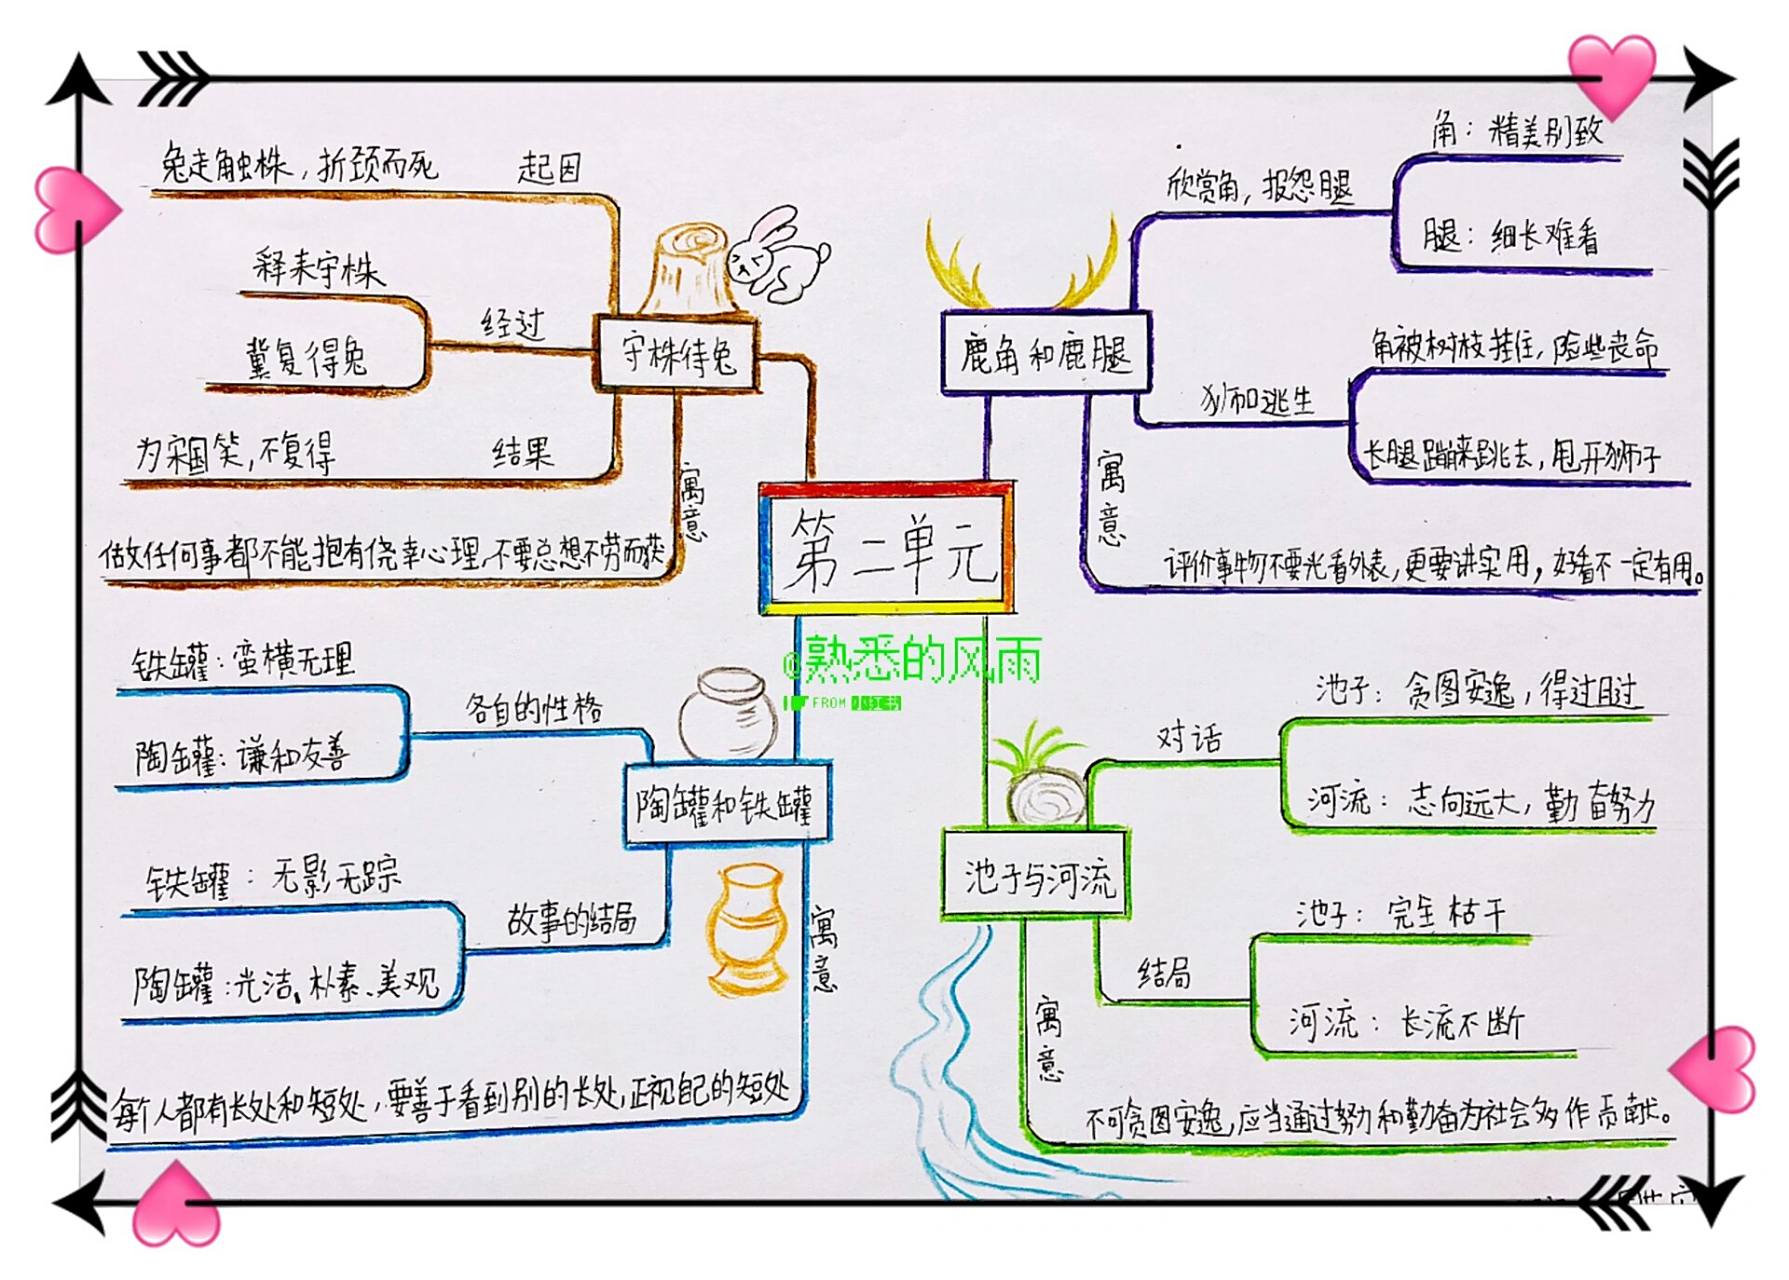 第二单元
守株待兔
兔走触株，折颈而死
起因
经过
释耒守株
冀复得兔
为宋国笑，不复得
结果
寓意
做任何事都不能抱有侥幸心理，不要总想不劳而获
鹿角和鹿腿
欣赏角，报怨腿
角：精美别致
腿：细长难看
狮口逃生
角被树枝挂住，险些丧命
长腿蹦来跳去，甩开狮子
寓意
评价事物不要光看外表，更要讲实用，好看不一定有用。
陶罐和铁罐
各自的性格
铁罐：蛮横无理
陶罐：谦和友善
故事的结局
铁罐：无影无踪
陶罐：光洁、朴素、美观
寓意
每个人都有长处和短处，要善于看到别的长处，正视自己的短处
池子与河流
对话
池子：贪图安逸，得过且过
河流：志向远大，勤奋努力
结局
池子：完全枯干
河流：长流不断
寓意
不可贪图安逸，应当通过努力和勤奋为社会多作贡献。
@熟悉的风雨
FROM 小红书